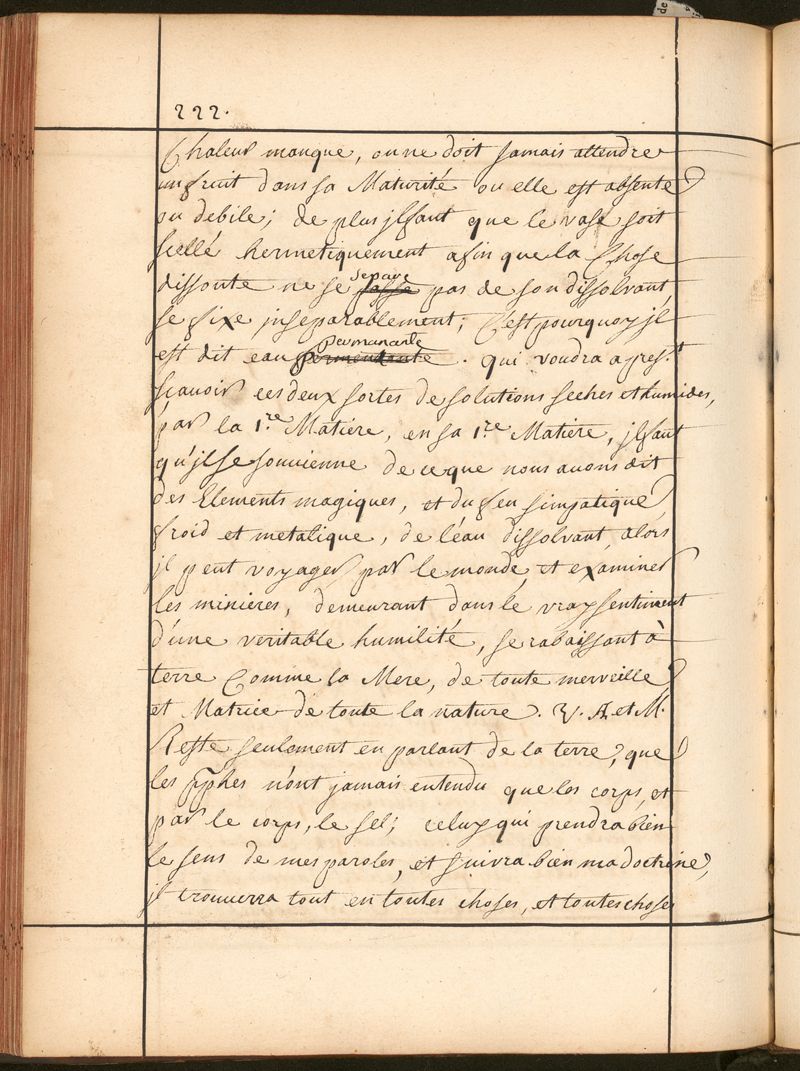 222.
Chaleur manque, on ne doit jamais attendre
un fruit dans sa Maturité ou elle est absente
ou debile; de plus jl faut que le vase soit
scellé hermetiquement afin que la Chose
dissoute ne se separe pas de son dissolvant,
se fixe jnseparablement; C'est pourquoy jl
est dit eau permanante. qui voudra apres.t
scauoir ces deux sortes de solutions seches et humides,
par la 1.re Matiére, en sa 1.re Matiére, jl faut
qu'jl se souvienne de ce que nous auons dit
des Elements magiques, et du feu simpatique
froid et metalique, de l'éau dissolvant, alors
jl peut voyager par le monde, et examiner
les minieres, demeurant dans le vray sentiment
d'une veritable humilité, se rabaissant à
terre Comme la Mere, de toute merveille
et Matrice de toute la nature. V. A. et M.
Reste seulement en parlant de la terre, que
les pphes n'ont jamais entendu que les corps, et
par le corps, le sel; celuy qui prendra bien
le sens de mes paroles, et suivra bien ma doctrine,
jl trouuerra tout en toutes choses, et toutes choses